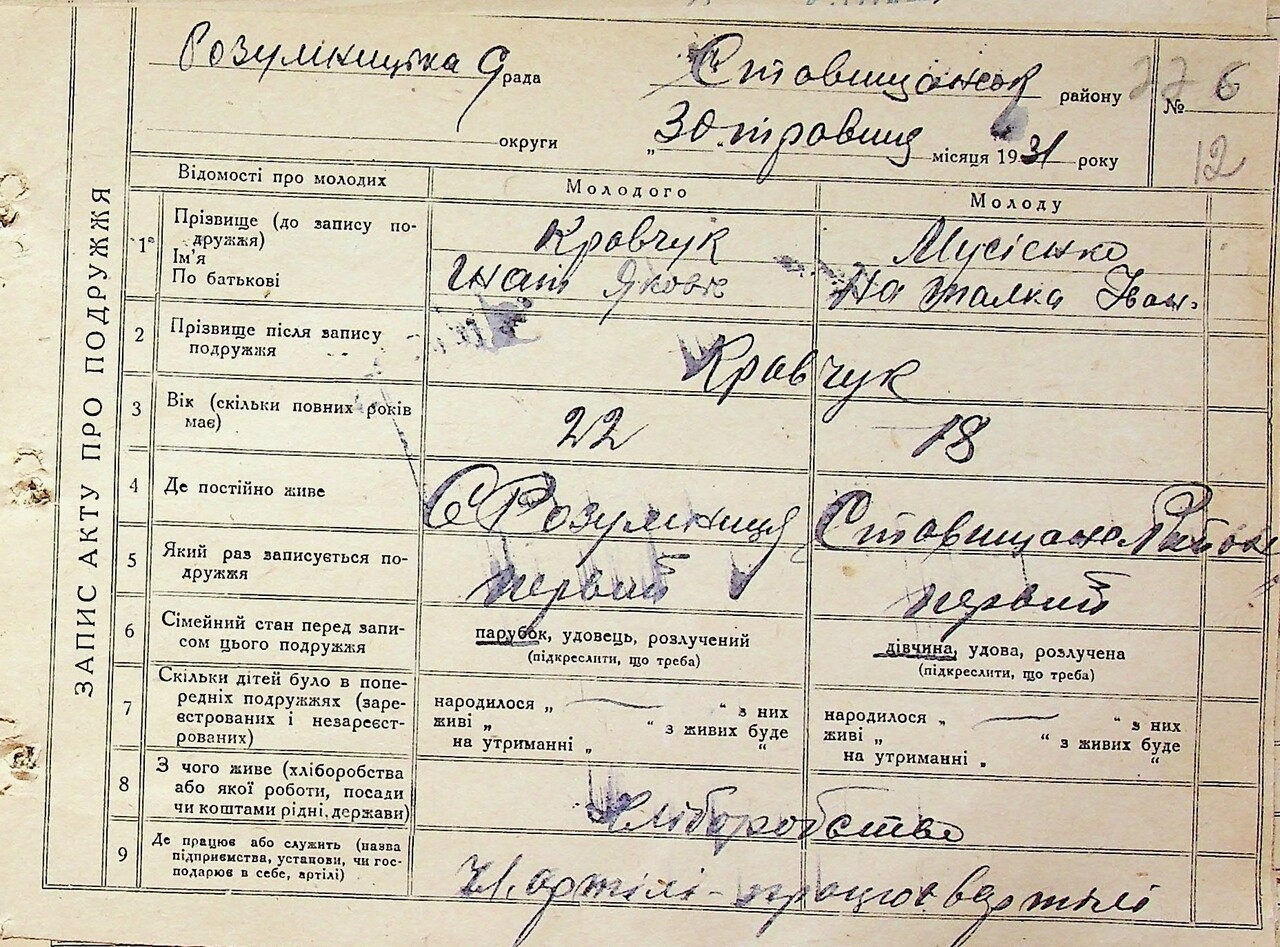 Розумницька С рада Ставищанськ району № 6
округи „30„ травня місяця 1931 року 12
ЗАПИС АКТУ ПРО ПОДРУЖЖЯ
Відомості про молодих Молодого Молоду
1 Прізвище (до запису по-
дружжя) Кравчук Мусієнко
Ім'я
По батькові Гнат Яковл Наталка Іван.
2 Прізвище після запису
подружжя Кравчук
3 Вік (скільки повних років
має) 22 18
4 Де постійно живе С Розумниця Ставищанс. Район
5 Який раз записується по-
дружжя первий первий
6 Сімейний стан перед запи-
сом цього подружжя
парубок, удовець, розлучений
(підкреслити, що треба)
дівчина, удова, розлучена
(підкреслити, що треба)
7 Скільки дітей було в попе-
редніх подружжях (заре-
єстрованих і незареєст-
рованих)
народилося „ — “ з них
живі „ “ з живих буде
на утриманні „ “
народилося „ — “ з них
живі „ “ з живих буде
на утриманні „ “
8 З чого живе (хліборобства
або якої роботи, посади
чи коштами рідні, держави) хліборобство
9 Де працює або служить (назва
підприємства, установи, чи гос-
подарює в себе, артілі) Чл. артілі - працює в артілі